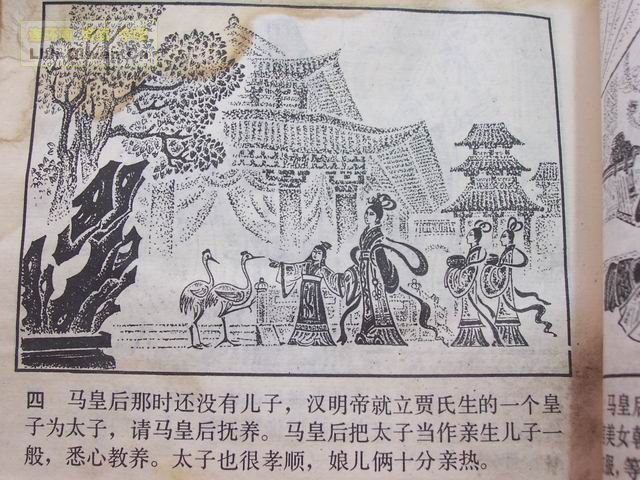 四 马皇后那时还没有儿子，汉明帝就立贾氏生的一个皇
子为太子，请马皇后抚养。马皇后把太子当作亲生儿子一
般，悉心教养。太子也很孝顺，娘儿俩十分亲热。
马皇后
美女
服，等